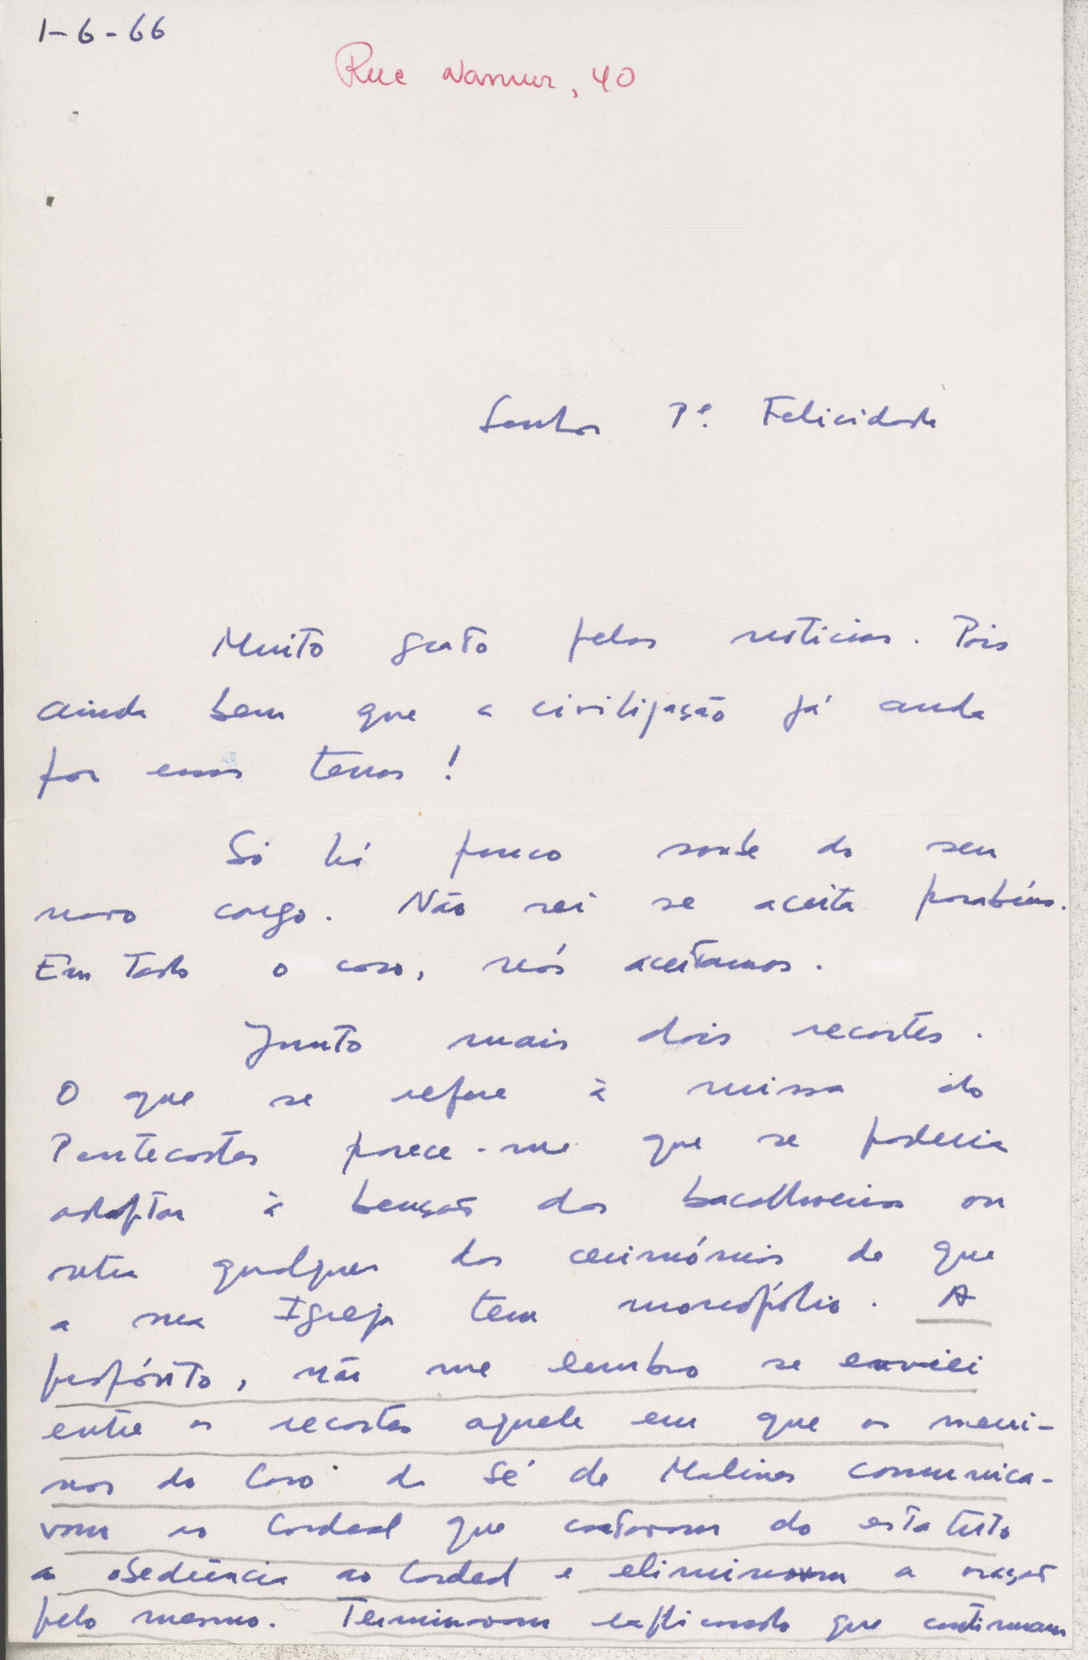 1-6-66
Rue Namur, 40
Senhor Pe. Felicidade
Muito grato pelas noticias. Pois
ainda bem que a civilização já anda
por essas terras!
Só há pouco soube do seu
novo cargo. Não sei se aceita parabéns.
Em todo o caso, nós aceitamos.
Junto mais dois recortes.
O que se refere à missa do
Pentecostes parece-me que se poderia
adoptar à benção dos bacalhoeiros ou
outra qualquer das cerimónias de que
a sua Igreja tem monopólio. A
propósito, não me lembro se enviei
entre os recortes aquele em que os meni-
nos do Coro da Sé de Malines comunica-
vam ao Cardeal que cortavam do estatuto
a obediência ao Cardeal e eliminavam a oração
pelo mesmo. Terminavam explicando que continuam